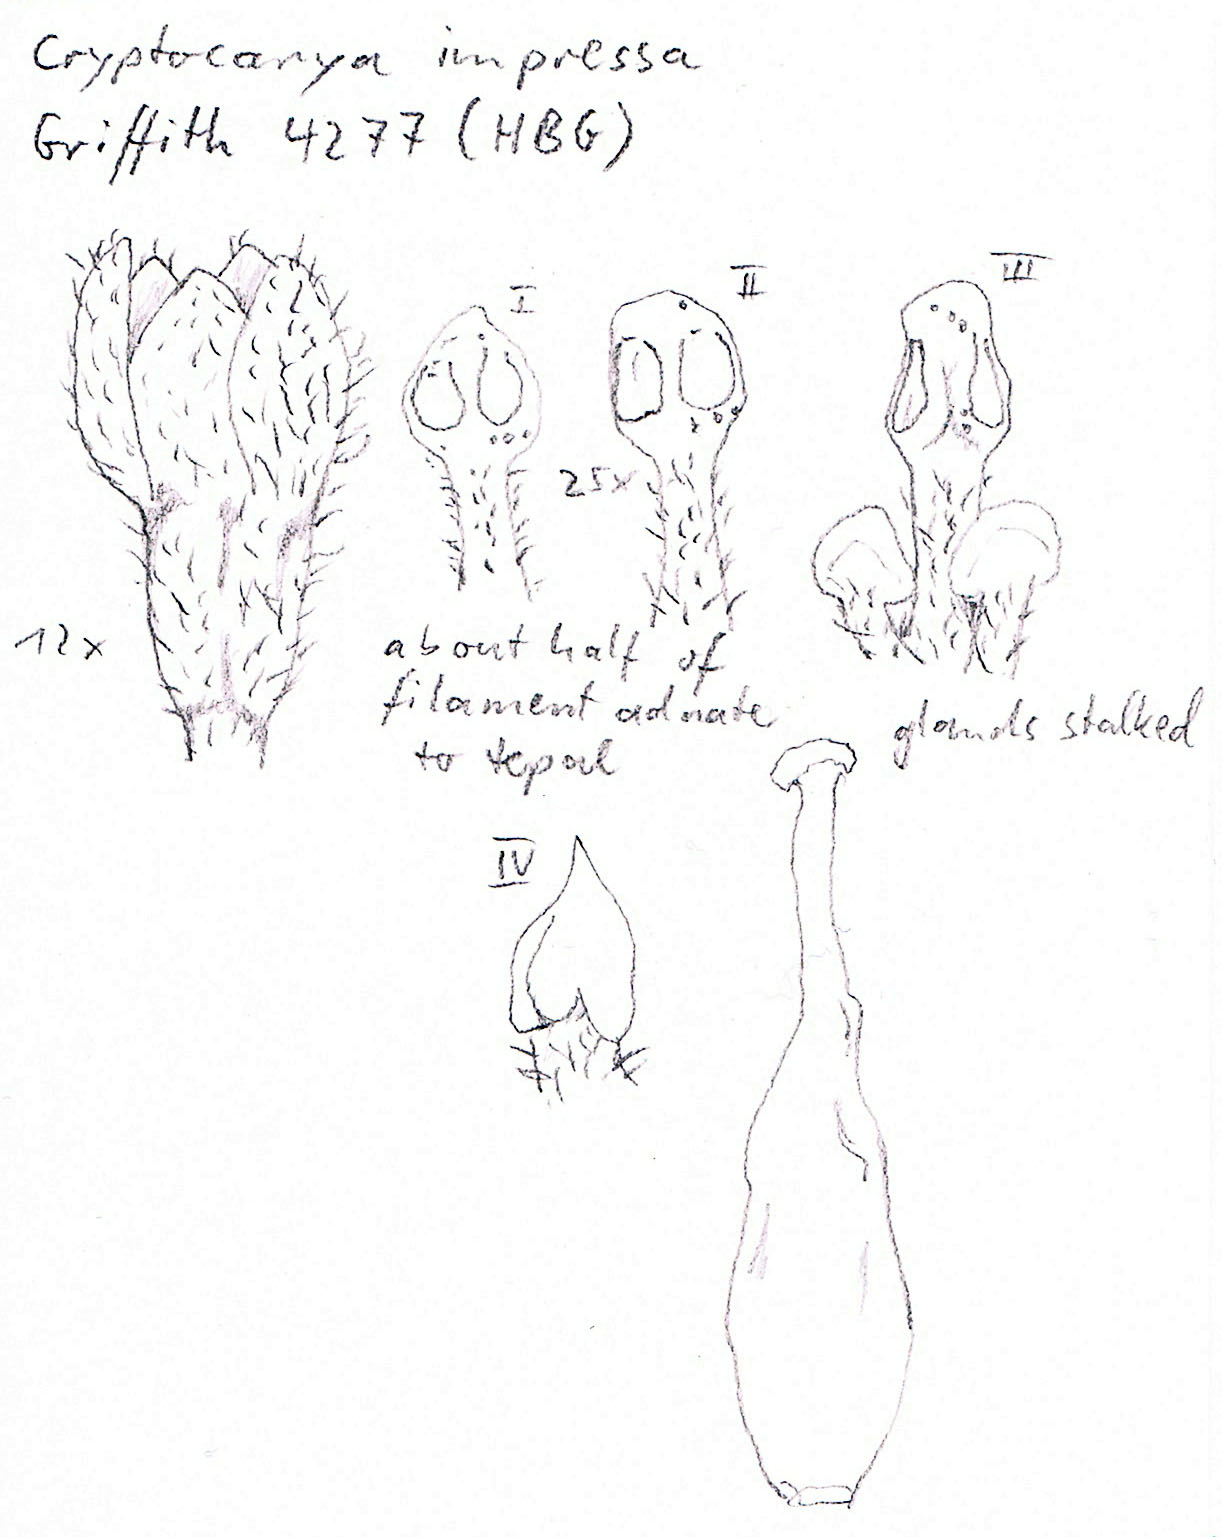 Cryptocarya impressa
Griffith 4277 (HBG)
I
II
III
25x
12x
about half of
filament adnate
to tepal
glands stalked
IV